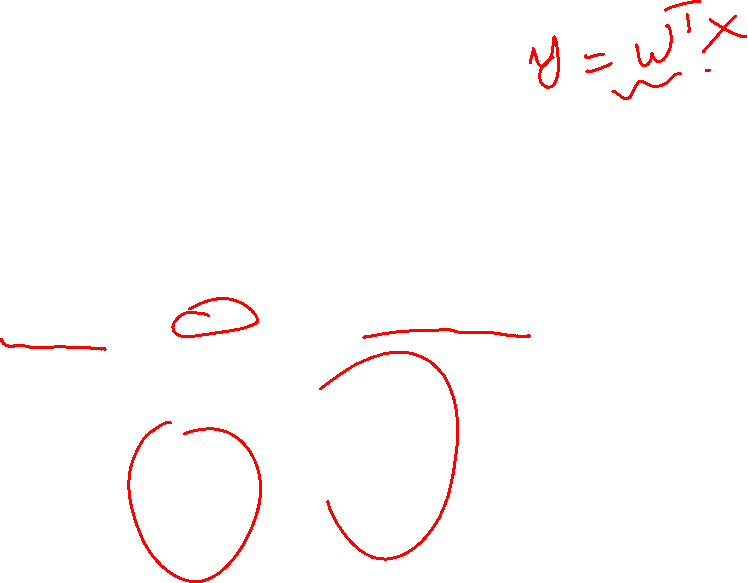 y = wᵀx